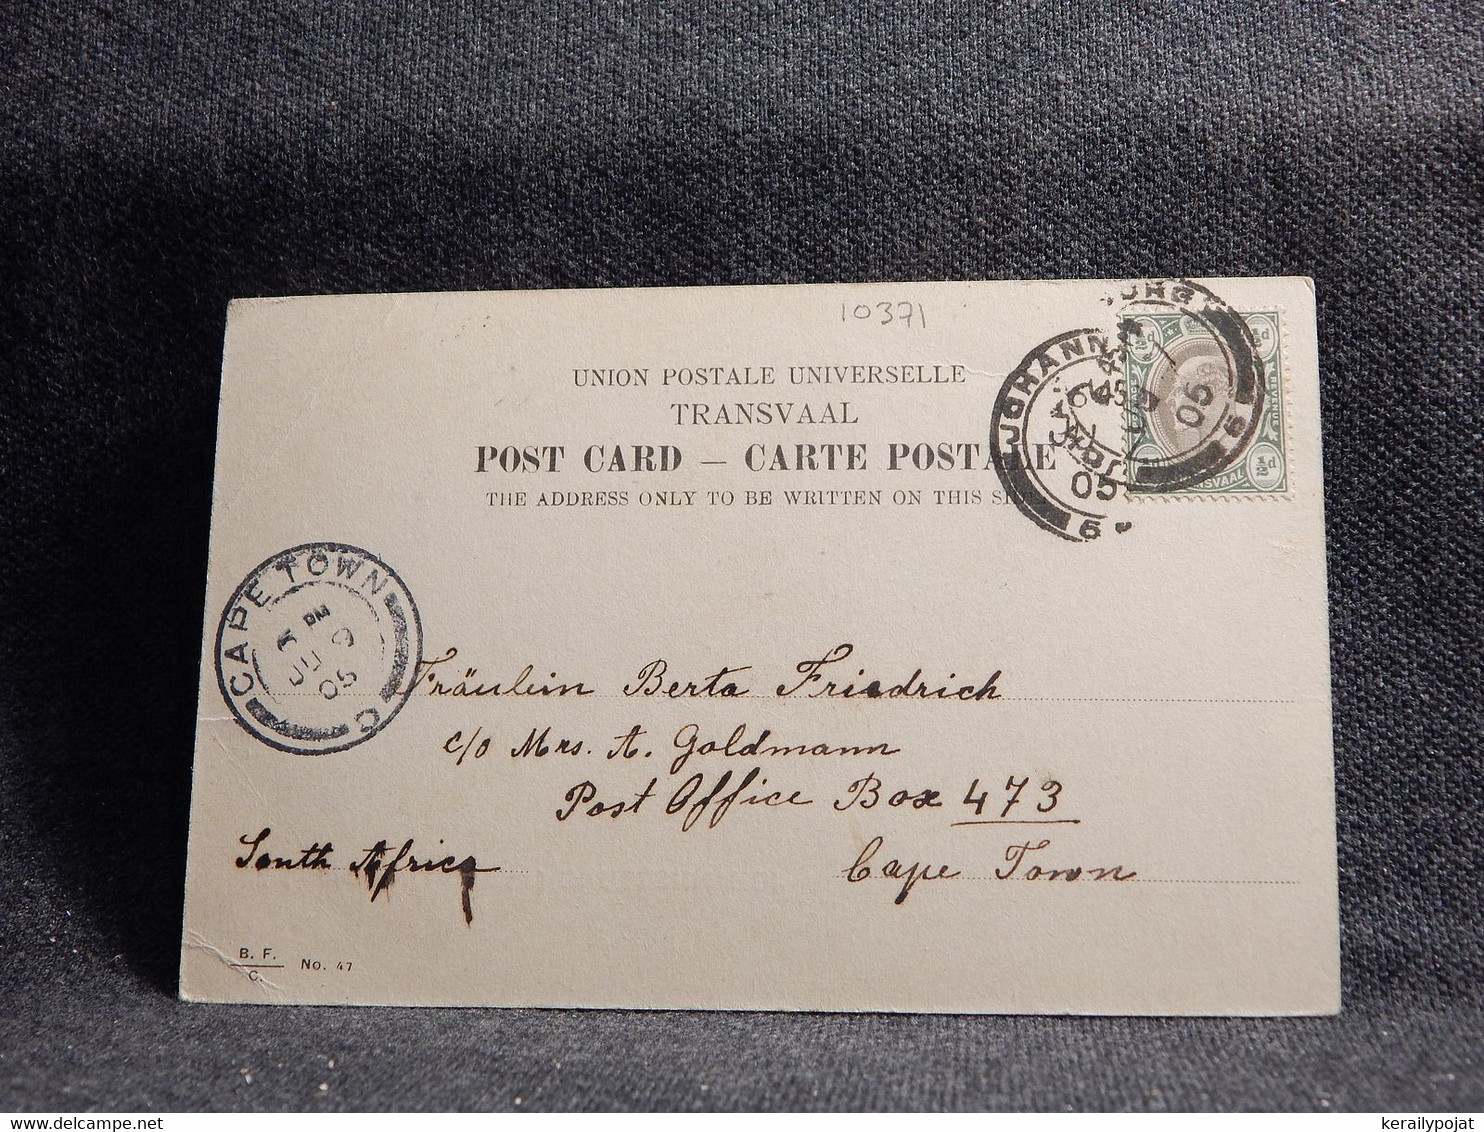 10371
UNION POSTALE UNIVERSELLE
TRANSVAAL
POST CARD — CARTE POSTALE
THE ADDRESS ONLY TO BE WRITTEN ON THIS
JOHANN
05
05
5
½d
½d
½d
TRANSVAAL
CAPE TOWN
PM
9
05
C
Fräulein Berta Friedrich
c/o Mrs. A. Goldmann
Post Office Box 473
South Africa Cape Town
B. F.
C.
No. 47
kerailypojat